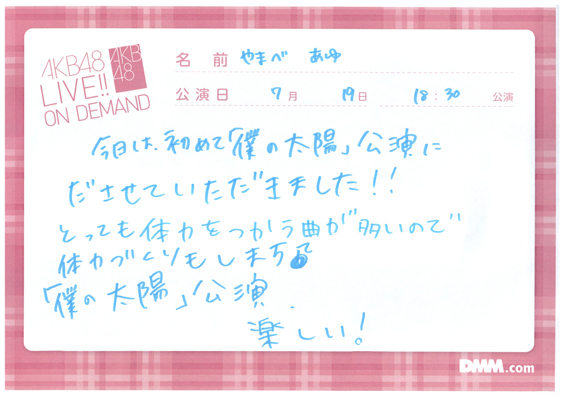 AKB48
LIVE!!
ON DEMAND
AKB
48
名 前 やまべ あゆ
公演日 7月 19日 18:30 公演
今日は、初めて「僕の太陽」公演に
ださせていただきました!!
とっても体力をつかう曲が多いので
体力づくりもします
「僕の太陽」公演
楽しい!
DMM.com